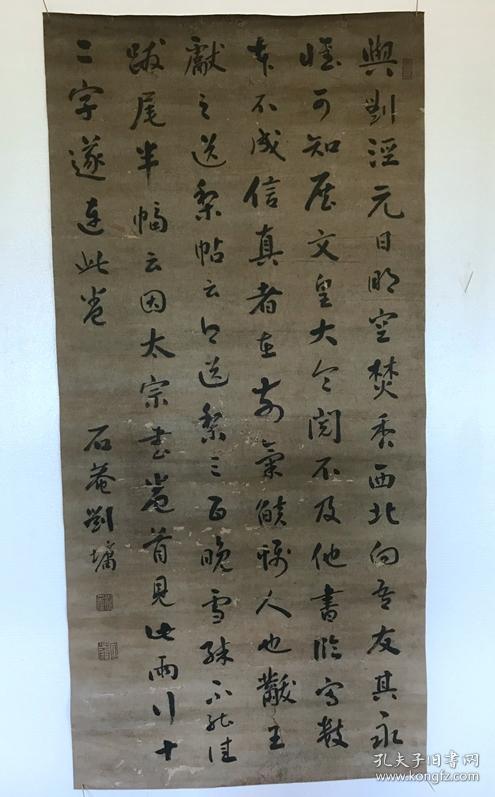 與劉涇元日明窓焚香西北向吾友其永
懷可知展文皇大令閱不及他書臨寫數
本不成信真者在前氣餒懾人也 獻王
獻之送梨帖云今送梨三百晚雪殊不能佳
跋尾半幅云因太宗書卷首見此兩行十
二字遂連此卷
石菴劉墉
孔夫子旧书网
www.kongfz.com